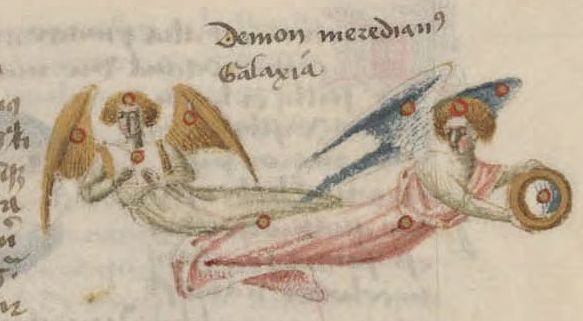 Demon meredianꝰ
Galaxia